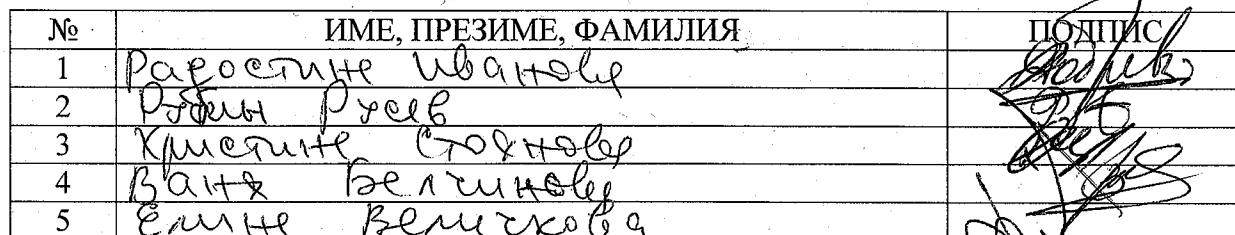 № ИМЕ, ПРЕЗИМЕ, ФАМИЛИЯ ПОДПИС
1 Радостина Иванова
2 Русев
3 Кристина Стоянова
4 Ваня Белчинова
5 Елина Величкова